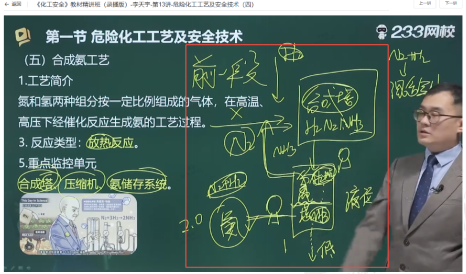 返回
《化工安全》教材精讲班（新撼版）-李天宇-第13讲-危险化工工艺及安全技术（四）
上一讲
下一讲
第一节 危险化工工艺及安全技术
233网校
（五）合成氨工艺
1.工艺简介
氮和氢两种组分按一定比例组成的气体，在高温、
高压下经催化反应生成氨的工艺过程。
3. 反应类型：放热反应。
5.重点监控单元
合成塔、压缩机、氨储存系统。
前一平安
合成塔
H₂ N₂ NH₃
N₂
NH₃
N₂+H₂
氨
2.0
液位
低